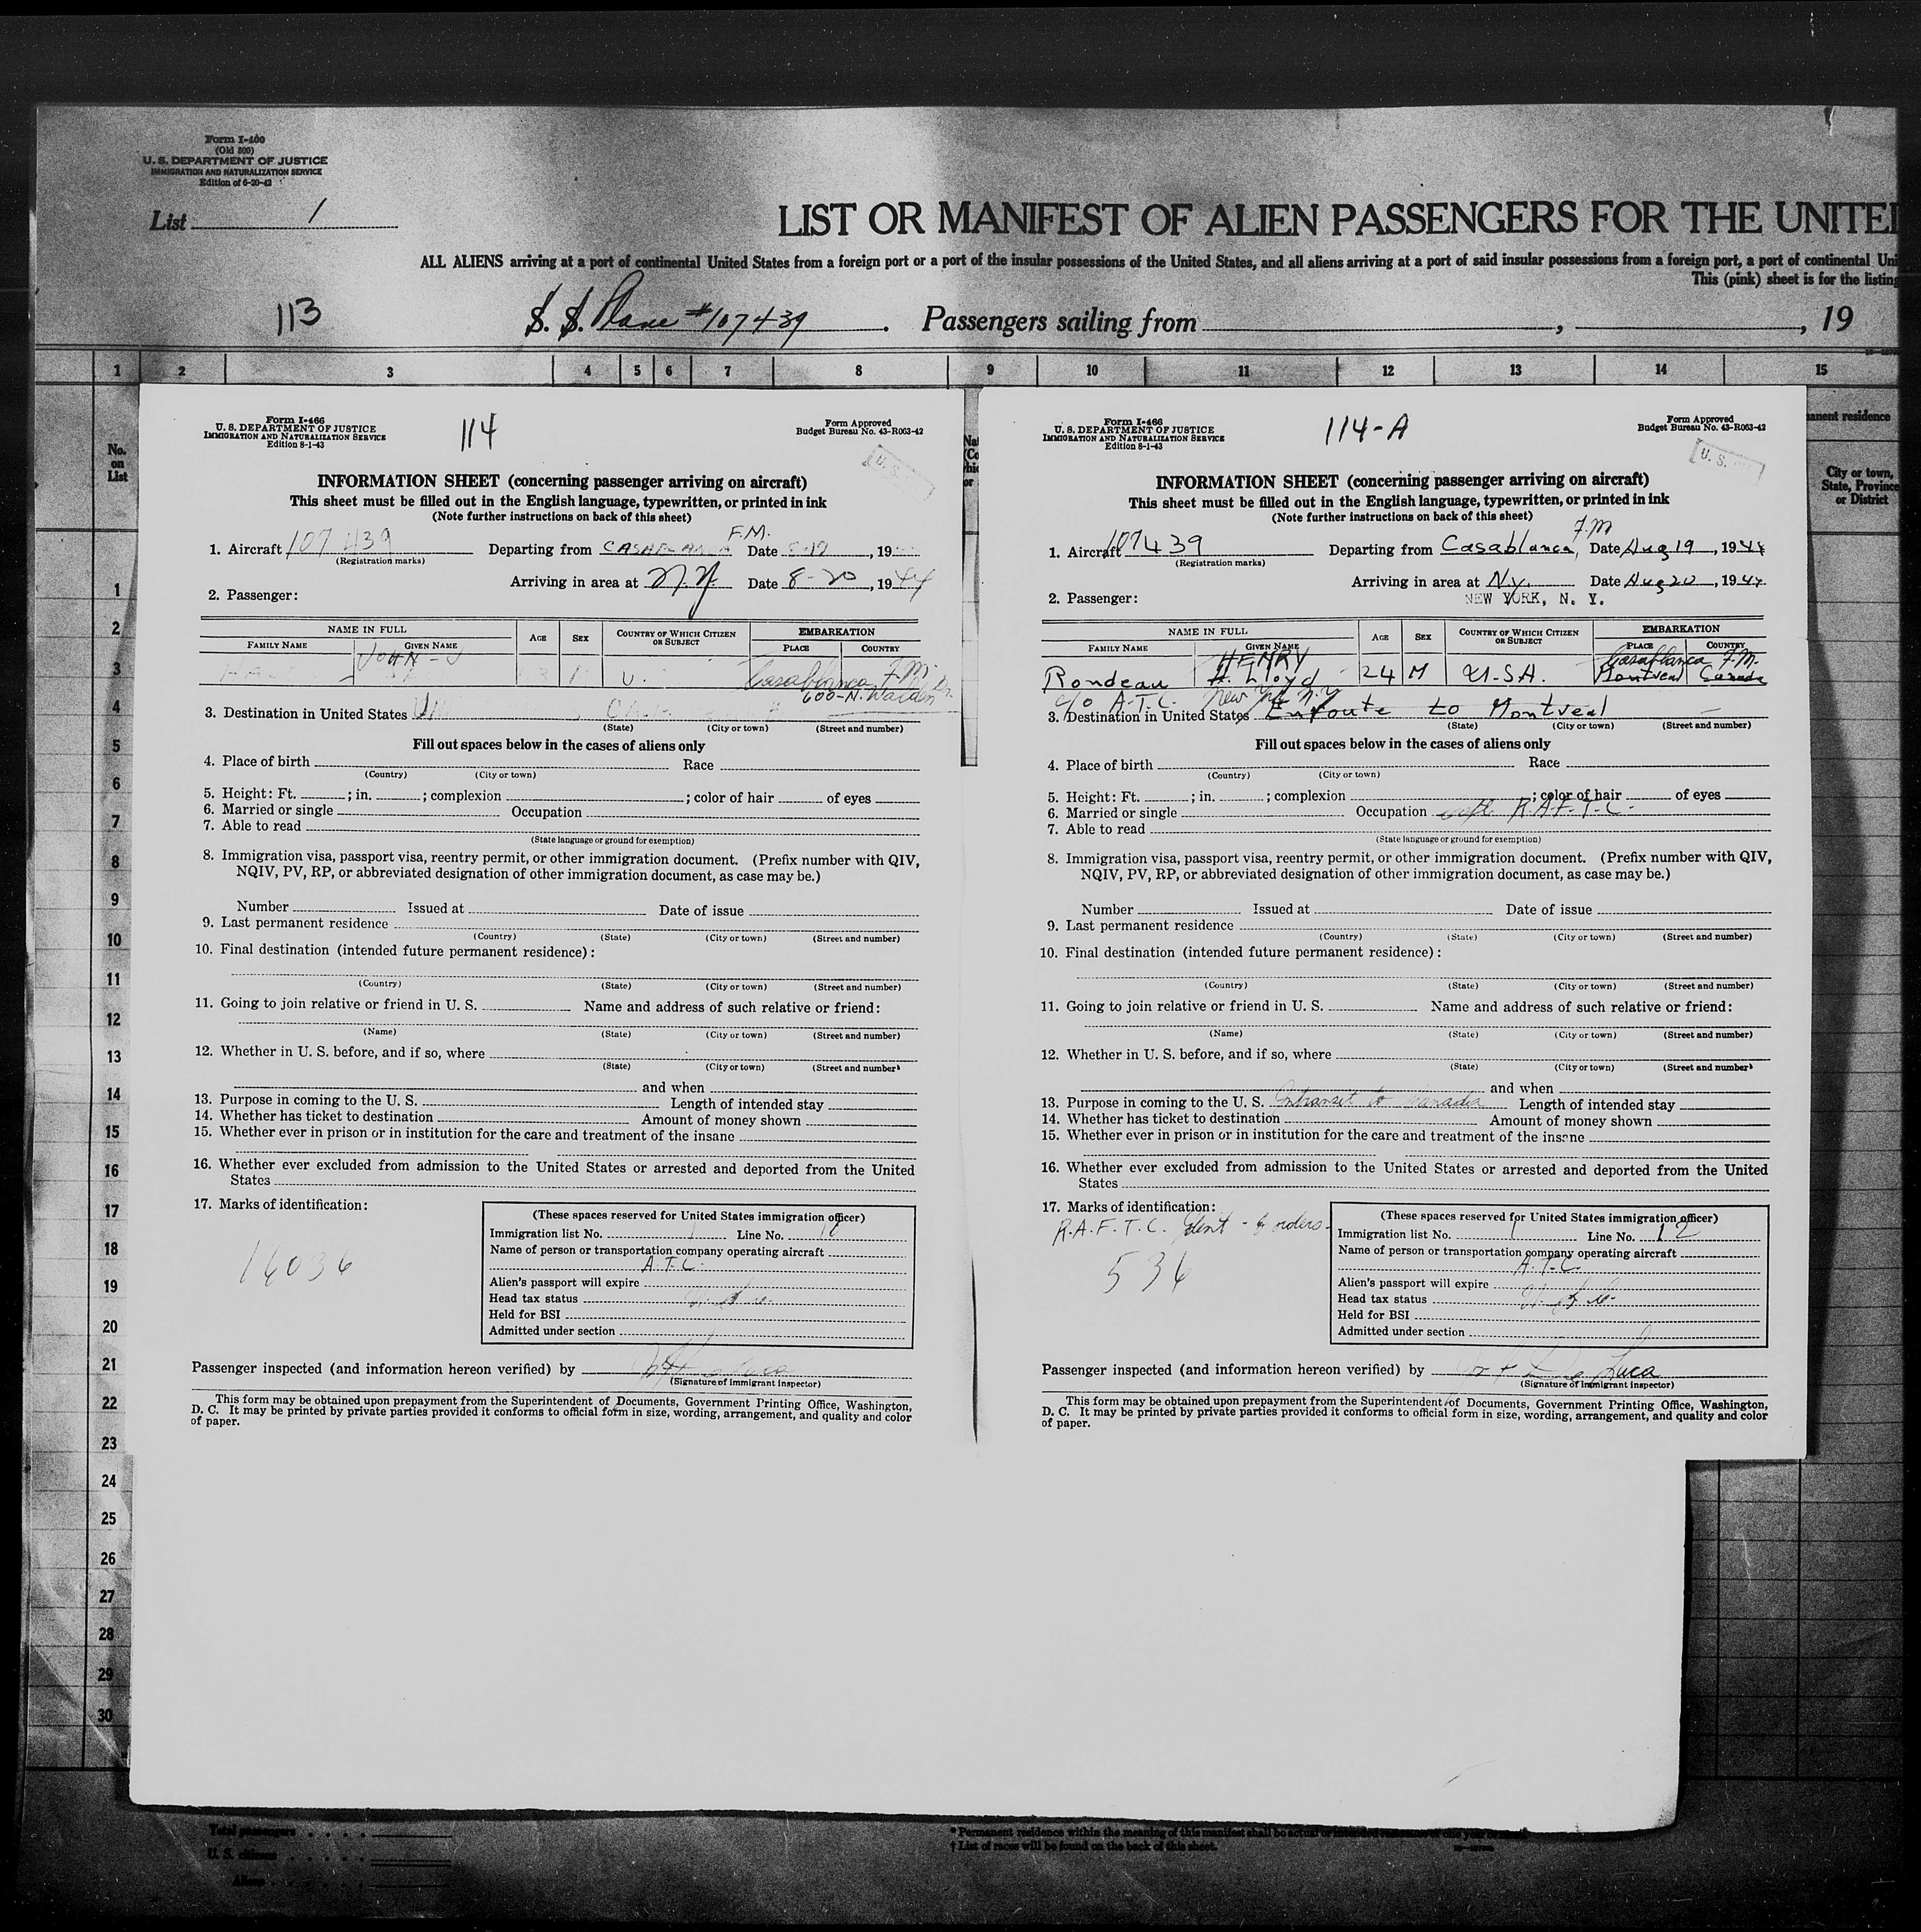 Form I-400
(Old 500)
U. S. DEPARTMENT OF JUSTICE
IMMIGRATION AND NATURALIZATION SERVICE
Edition of 6-20-42
List 1
LIST OR MANIFEST OF ALIEN PASSENGERS FOR THE UNITED
ALL ALIENS arriving at a port of continental United States from a foreign port or a port of the insular possessions of the United States, and all aliens arriving at a port of said insular possessions from a foreign port, a port of continental Uni
This (pink) sheet is for the listing
113
S. S. Plane #107439 . Passengers sailing from , , 19
1 2 3 4 5 6 7 8 9 10 11 12 13 14 15
No. on List
anent residence
City or town, State, Province or District
1
2
3
4
5
6
7
8
9
10
11
12
13
14
15
16
17
18
19
20
21
22
23
24
25
26
27
28
29
30
Form I-466
U. S. DEPARTMENT OF JUSTICE
IMMIGRATION AND NATURALIZATION SERVICE
Edition 8-1-43
114
Form Approved
Budget Bureau No. 43-R063-42
U. S.
INFORMATION SHEET (concerning passenger arriving on aircraft)
This sheet must be filled out in the English language, typewritten, or printed in ink
(Note further instructions on back of this sheet)
F.M.
1. Aircraft 107439 Departing from CASABLANCA Date 8-19, 19
(Registration marks)
Arriving in area at N.Y. Date 8-20, 1944
2. Passenger:
NAME IN FULL AGE SEX COUNTRY OF WHICH CITIZEN OR SUBJECT EMBARKATION
FAMILY NAME GIVEN NAME PLACE COUNTRY
JOHN - J U. Casablanca F.M.
600-N. Walden Dr.
3. Destination in United States
(State) (City or town) (Street and number)
Fill out spaces below in the cases of aliens only
4. Place of birth Race
(Country) (City or town)
5. Height: Ft. ; in. ; complexion ; color of hair of eyes
6. Married or single Occupation
7. Able to read
(State language or ground for exemption)
8. Immigration visa, passport visa, reentry permit, or other immigration document. (Prefix number with QIV,
NQIV, PV, RP, or abbreviated designation of other immigration document, as case may be.)
Number Issued at Date of issue
9. Last permanent residence
(Country) (State) (City or town) (Street and number)
10. Final destination (intended future permanent residence):
(Country) (State) (City or town) (Street and number)
11. Going to join relative or friend in U. S. Name and address of such relative or friend:
(Name) (State) (City or town) (Street and number)
12. Whether in U. S. before, and if so, where
(State) (City or town) (Street and number)
and when
13. Purpose in coming to the U. S. Length of intended stay
14. Whether has ticket to destination Amount of money shown
15. Whether ever in prison or in institution for the care and treatment of the insane
16. Whether ever excluded from admission to the United States or arrested and deported from the United
States
17. Marks of identification:
16036
(These spaces reserved for United States immigration officer)
Immigration list No. 1 Line No.
Name of person or transportation company operating aircraft
A.T.C.
Alien's passport will expire
Head tax status
Held for BSI
Admitted under section
Passenger inspected (and information hereon verified) by
(Signature of immigrant inspector)
This form may be obtained upon prepayment from the Superintendent of Documents, Government Printing Office, Washington,
D. C. It may be printed by private parties provided it conforms to official form in size, wording, arrangement, and quality and color
of paper.
Form I-466
U. S. DEPARTMENT OF JUSTICE
IMMIGRATION AND NATURALIZATION SERVICE
Edition 8-1-43
114-A
Form Approved
Budget Bureau No. 43-R063-42
U. S.
INFORMATION SHEET (concerning passenger arriving on aircraft)
This sheet must be filled out in the English language, typewritten, or printed in ink
(Note further instructions on back of this sheet)
F.M
1. Aircraft 107439 Departing from Casablanca, Date Aug 19, 1944
(Registration marks)
Arriving in area at N.y. Date Aug 20, 1944
2. Passenger: NEW YORK, N. Y.
NAME IN FULL AGE SEX COUNTRY OF WHICH CITIZEN OR SUBJECT EMBARKATION
FAMILY NAME GIVEN NAME PLACE COUNTRY
HENRY Casablanca F.M.
Rondeau H. Lloyd 24 M U.S.A. Montreal Canada
c/o A.T.C. New York N.Y
3. Destination in United States Enroute to Montreal
(State) (City or town) (Street and number)
Fill out spaces below in the cases of aliens only
4. Place of birth Race
(Country) (City or town)
5. Height: Ft. ; in. ; complexion ; color of hair of eyes
6. Married or single Occupation R.A.F.T.C.
7. Able to read
(State language or ground for exemption)
8. Immigration visa, passport visa, reentry permit, or other immigration document. (Prefix number with QIV,
NQIV, PV, RP, or abbreviated designation of other immigration document, as case may be.)
Number Issued at Date of issue
9. Last permanent residence
(Country) (State) (City or town) (Street and number)
10. Final destination (intended future permanent residence):
(Country) (State) (City or town) (Street and number)
11. Going to join relative or friend in U. S. Name and address of such relative or friend:
(Name) (State) (City or town) (Street and number)
12. Whether in U. S. before, and if so, where
(State) (City or town) (Street and number)
and when
13. Purpose in coming to the U. S. Intransit to Canada Length of intended stay
14. Whether has ticket to destination Amount of money shown
15. Whether ever in prison or in institution for the care and treatment of the insane
16. Whether ever excluded from admission to the United States or arrested and deported from the United
States
17. Marks of identification:
R.A.F.T.C. Ident - & orders -
536
(These spaces reserved for United States immigration officer)
Immigration list No. 1 Line No. 12
Name of person or transportation company operating aircraft
A.T.C.
Alien's passport will expire
Head tax status
Held for BSI
Admitted under section
Passenger inspected (and information hereon verified) by De Luca
(Signature of immigrant inspector)
This form may be obtained upon prepayment from the Superintendent of Documents, Government Printing Office, Washington,
D. C. It may be printed by private parties provided it conforms to official form in size, wording, arrangement, and quality and color
of paper.
Total passengers
U. S. citizens
Aliens
* Permanent residence within the meaning of this manifest shall be actual or intended residence of one year or more.
† List of races will be found on the back of this sheet.